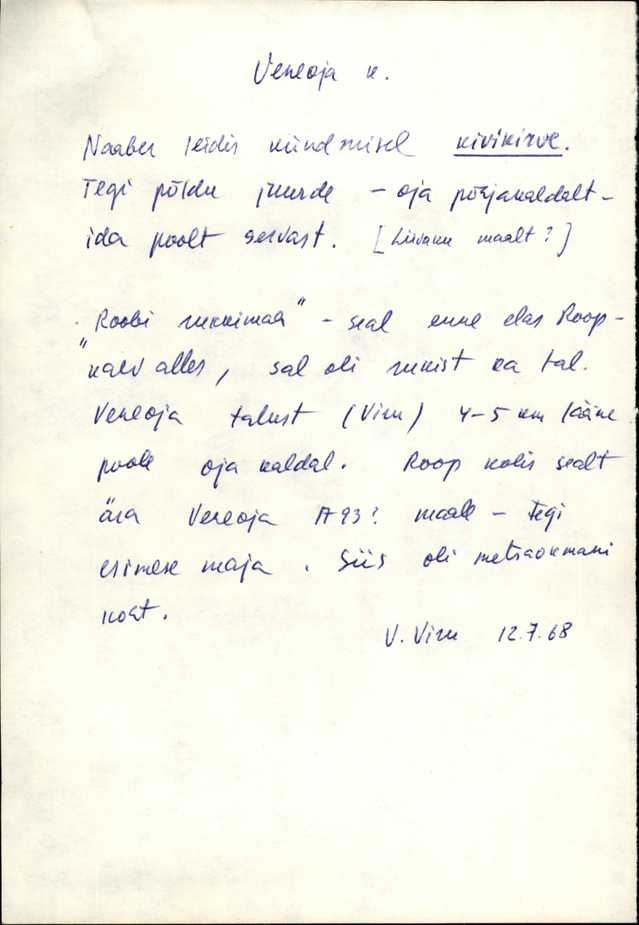 Veneoja k.
Naaber leidis kündmisel kivikirve.
Tegi põldu juurde – oja põhjakaldalt –
ida poolt servast. [Liivaku maalt?]
"Roobi rukkimaa" – seal enne elas Roop –
kaev alles, seal oli rukist ka tal.
Veneoja talust (Viru) 4–5 km lääne
poole oja kaldal. Roop kolis sealt
ära Veneoja A93? maale – Tegi
esimese maja. Siis oli metsaökmani
koht.
V. Viru 12.7.68